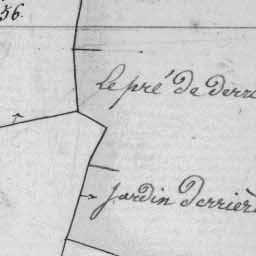 56.
le pré de derri
Jardin derrièr